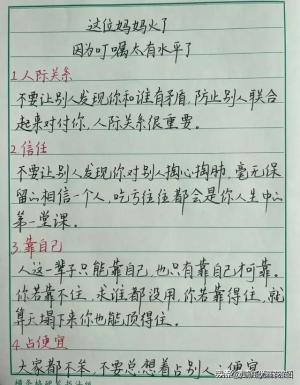 这位妈妈火了
因为叮嘱太有水平了
1.人际关系
不要让别人发现你和谁有矛盾,防止别人联合
起来对付你,人际关系很重要。
2.信任
不要让别人发现你对别人掏心掏肺,毫无保
留的相信一个人,吃亏往往都会是你人生中的
第一堂课。
3.靠自己
人这一辈子只能靠自己,也只有靠自己才可靠。
你若靠不住,求谁都没用,你若靠得住,就
算天塌下来你也能顶得住。
4.占便宜
大家都不笨,不要总想着占别人的便宜